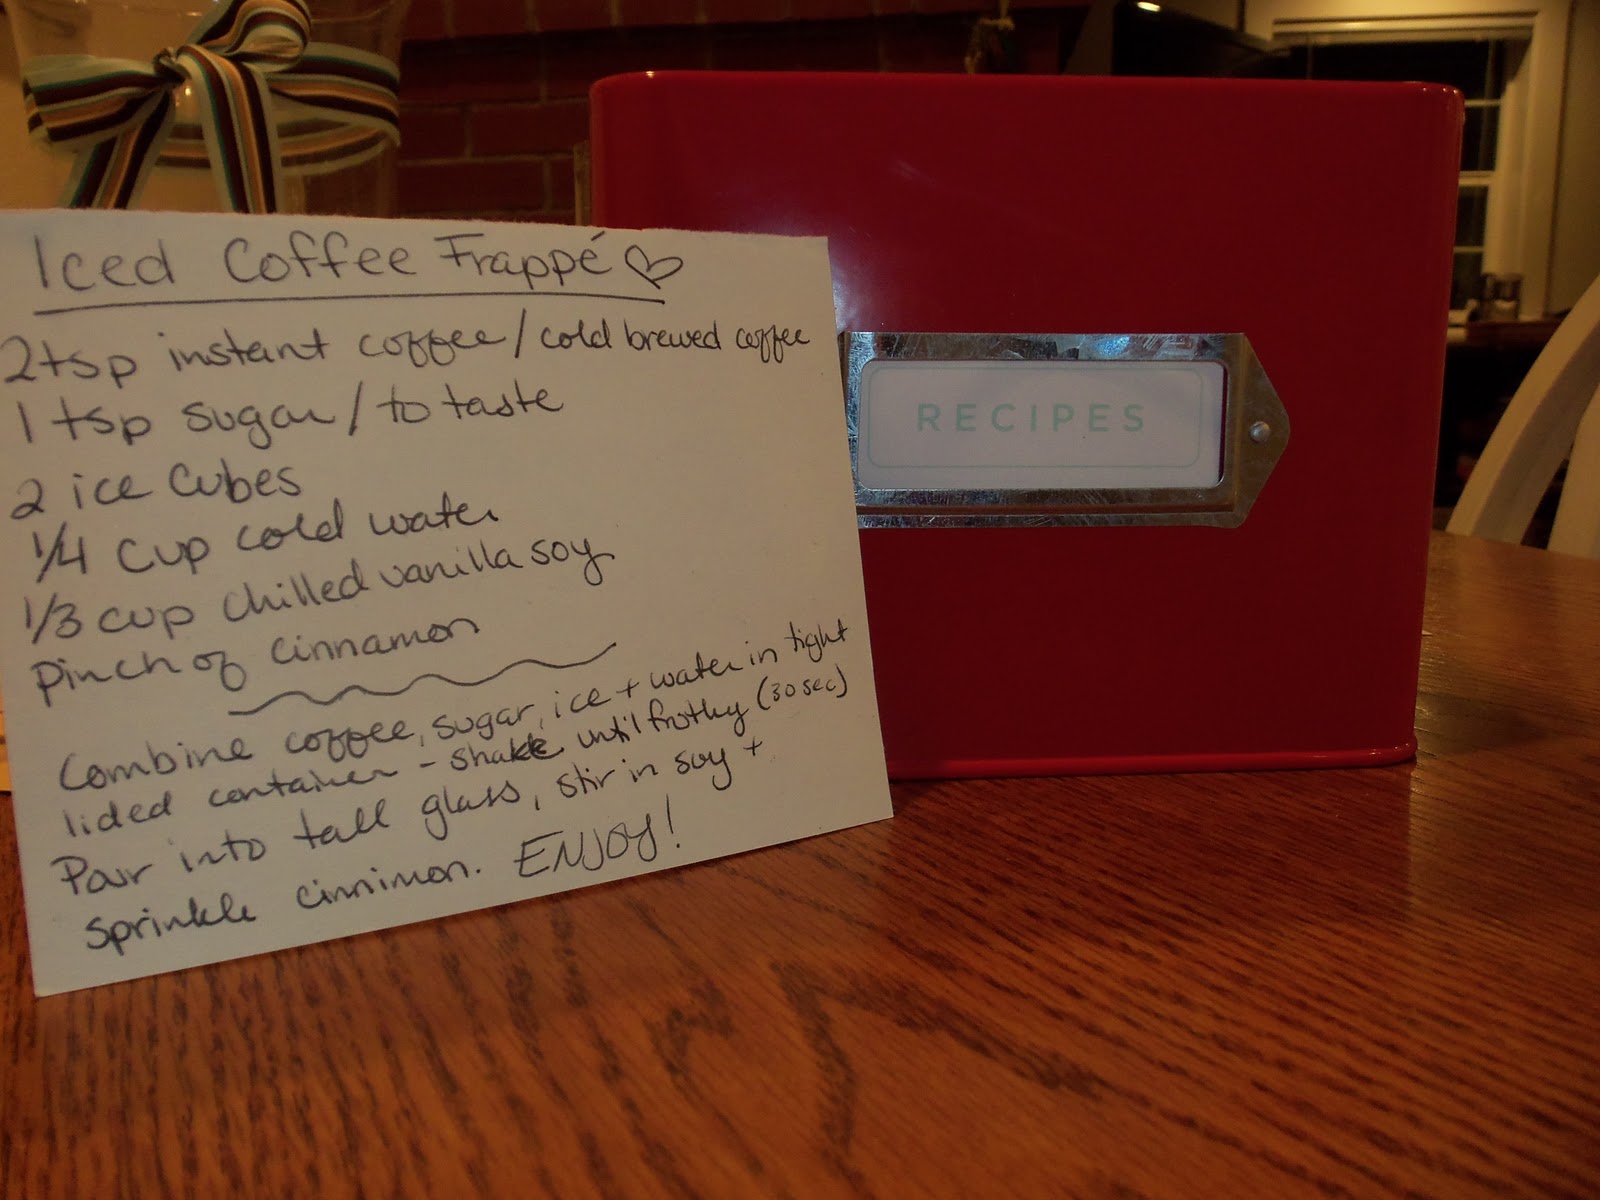 Iced Coffee Frappé
2 tsp instant coffee / cold brewed coffee
1 tsp sugar / to taste
2 ice cubes
1/4 cup cold water
1/3 cup chilled vanilla soy
Pinch of cinnamon
Combine coffee, sugar, ice + water in tight
lided container - shake until frothy (30 sec)
Pour into tall glass, stir in soy +
sprinkle cinnimon. ENJOY!
RECIPES